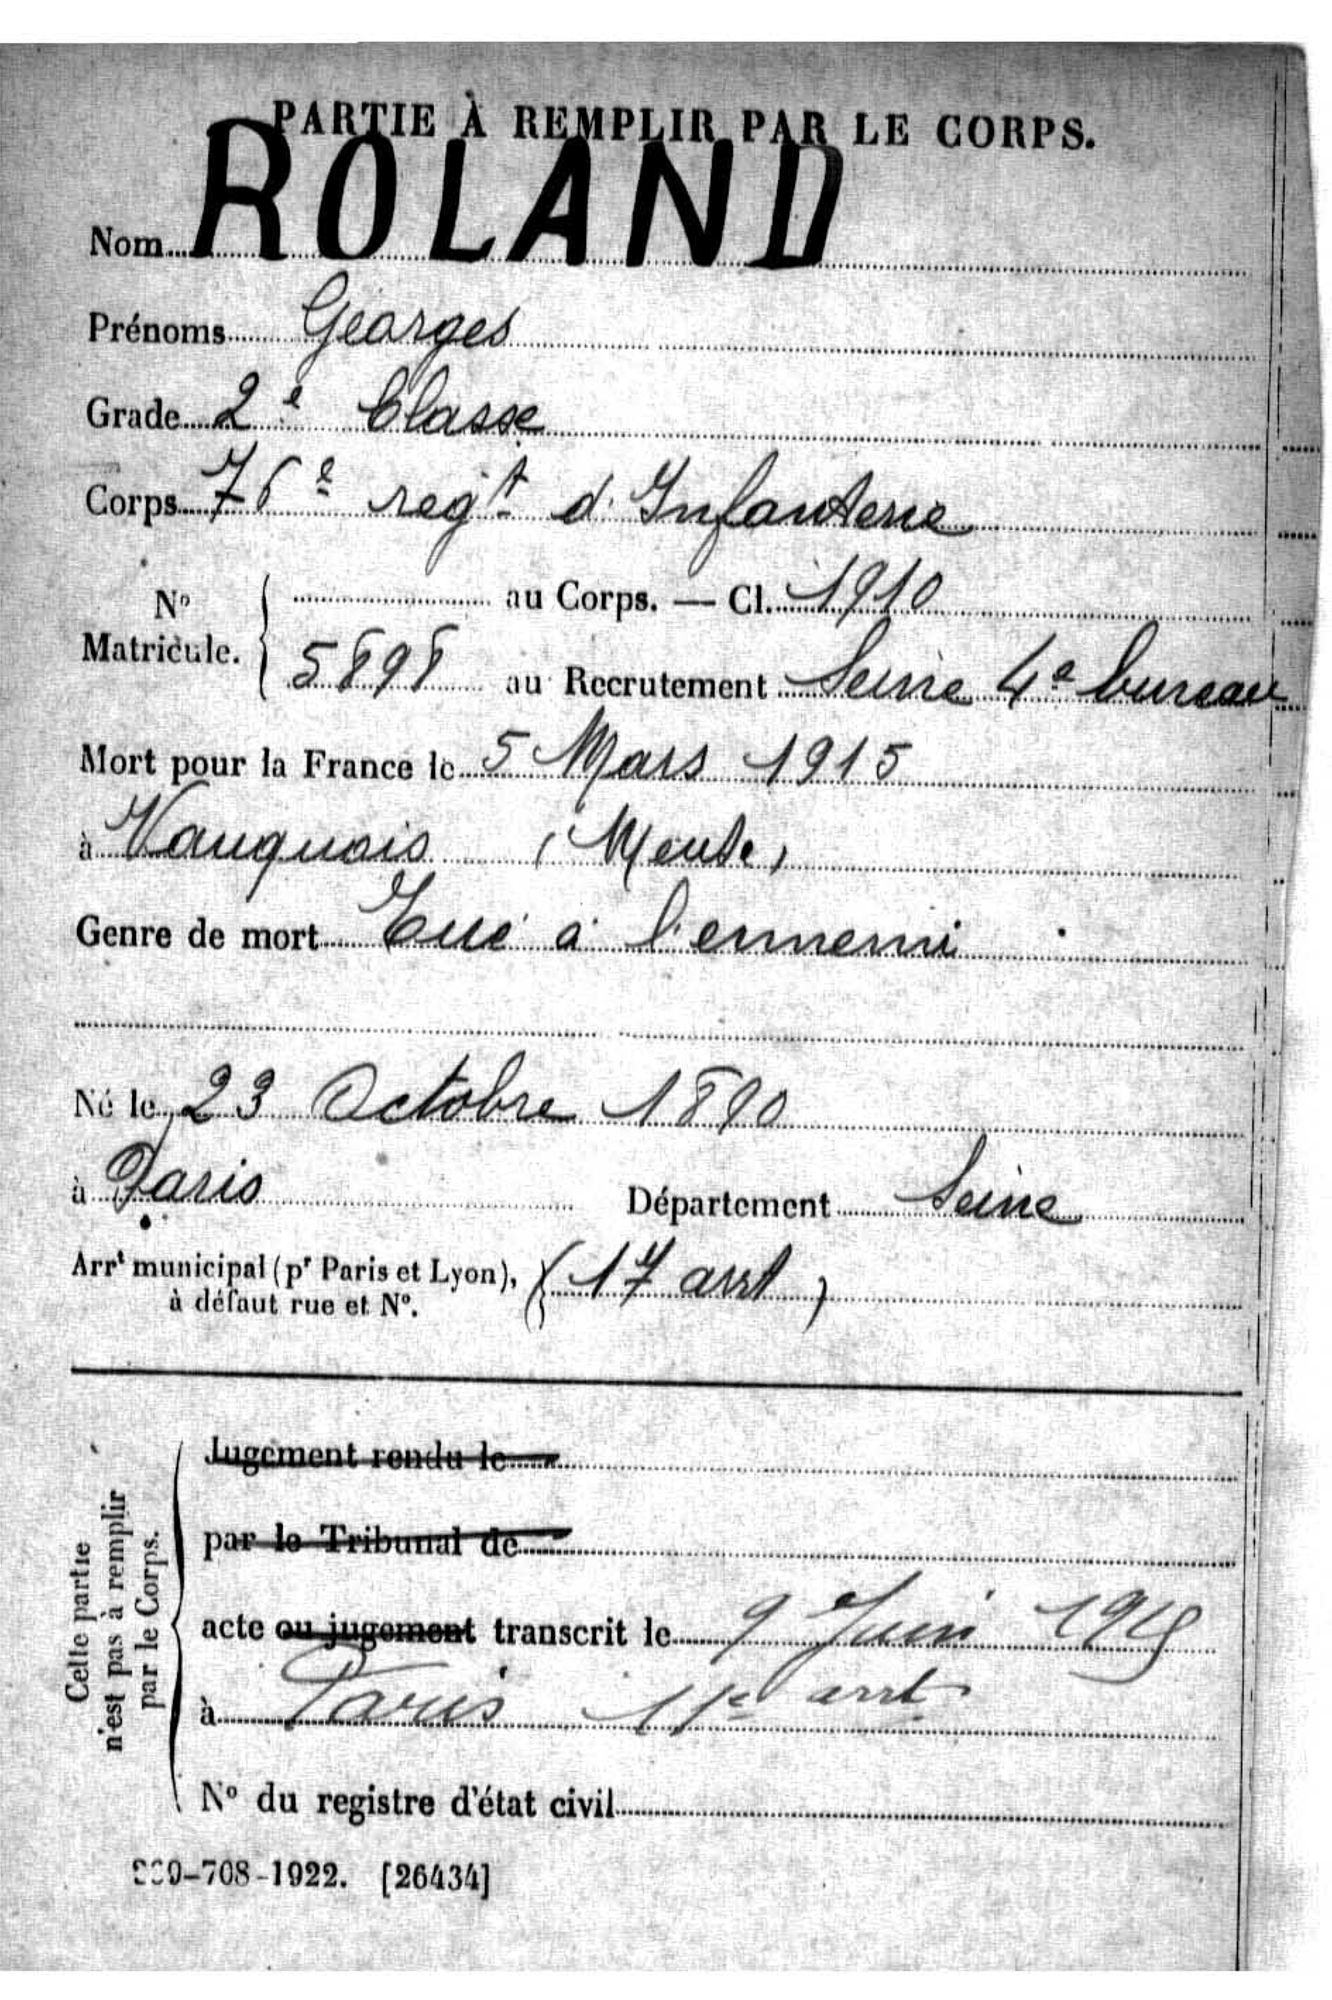 PARTIE À REMPLIR PAR LE CORPS.
Nom ROLAND
Prénoms Georges
Grade 2e Classe
Corps 76e regt d'Infanterie
No Matricule. { au Corps. — Cl. 1910
5898 au Recrutement Seine 4e bureau
Mort pour la France le 5 Mars 1915
à Vauquois (Meuse)
Genre de mort Tué à l'ennemi
Né le 23 Octobre 1890
à Paris Département Seine
Arrt municipal (pr Paris et Lyon), à défaut rue et No. (17 arrt)
Cette partie n'est pas à remplir par le Corps.
Jugement rendu le
par le Tribunal de
acte ou jugement transcrit le 9 Juin 1915
à Paris 11e arrt
No du registre d'état civil
-708-1922. [26434]